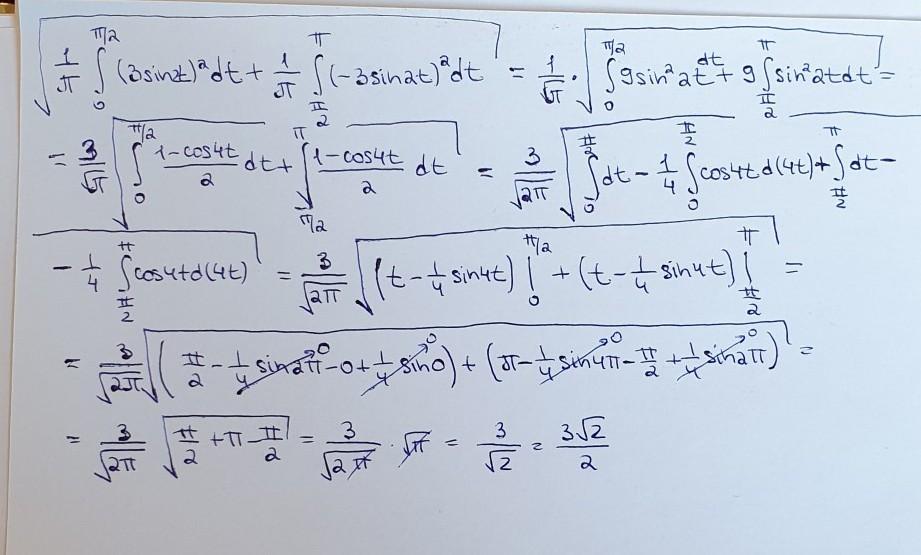 √(1/π ∫_0^{π/2} (3sin2t)²dt + 1/π ∫_{π/2}^{π} (-3sin2t)²dt) = 1/√π · √(∫_0^{π/2} 9sin²2t dt + 9∫_{π/2}^{π} sin²2tdt) =
= 3/√π √(∫_0^{π/2} (1-cos4t)/2 dt + ∫_{π/2}^{π} (1-cos4t)/2 dt) = 3/√(2π) √(∫_0^{π/2} dt - 1/4 ∫_0^{π/2} cos4t d(4t) + ∫_{π/2}^{π} dt -
- 1/4 ∫_{π/2}^{π} cos4td(4t)) = 3/√(2π) √((t - 1/4 sin4t)|_0^{π/2} + (t - 1/4 sin4t)|_{π/2}^{π}) =
= 3/√(2π) √((π/2 - 1/4 sin2π→0 - 0 + 1/4 sin0→0) + (π - 1/4 sin4π→0 - π/2 + 1/4 sin2π→0)) =
= 3/√(2π) √(π/2 + π - π/2) = 3/√(2π) · √π = 3/√2 = 3√2/2